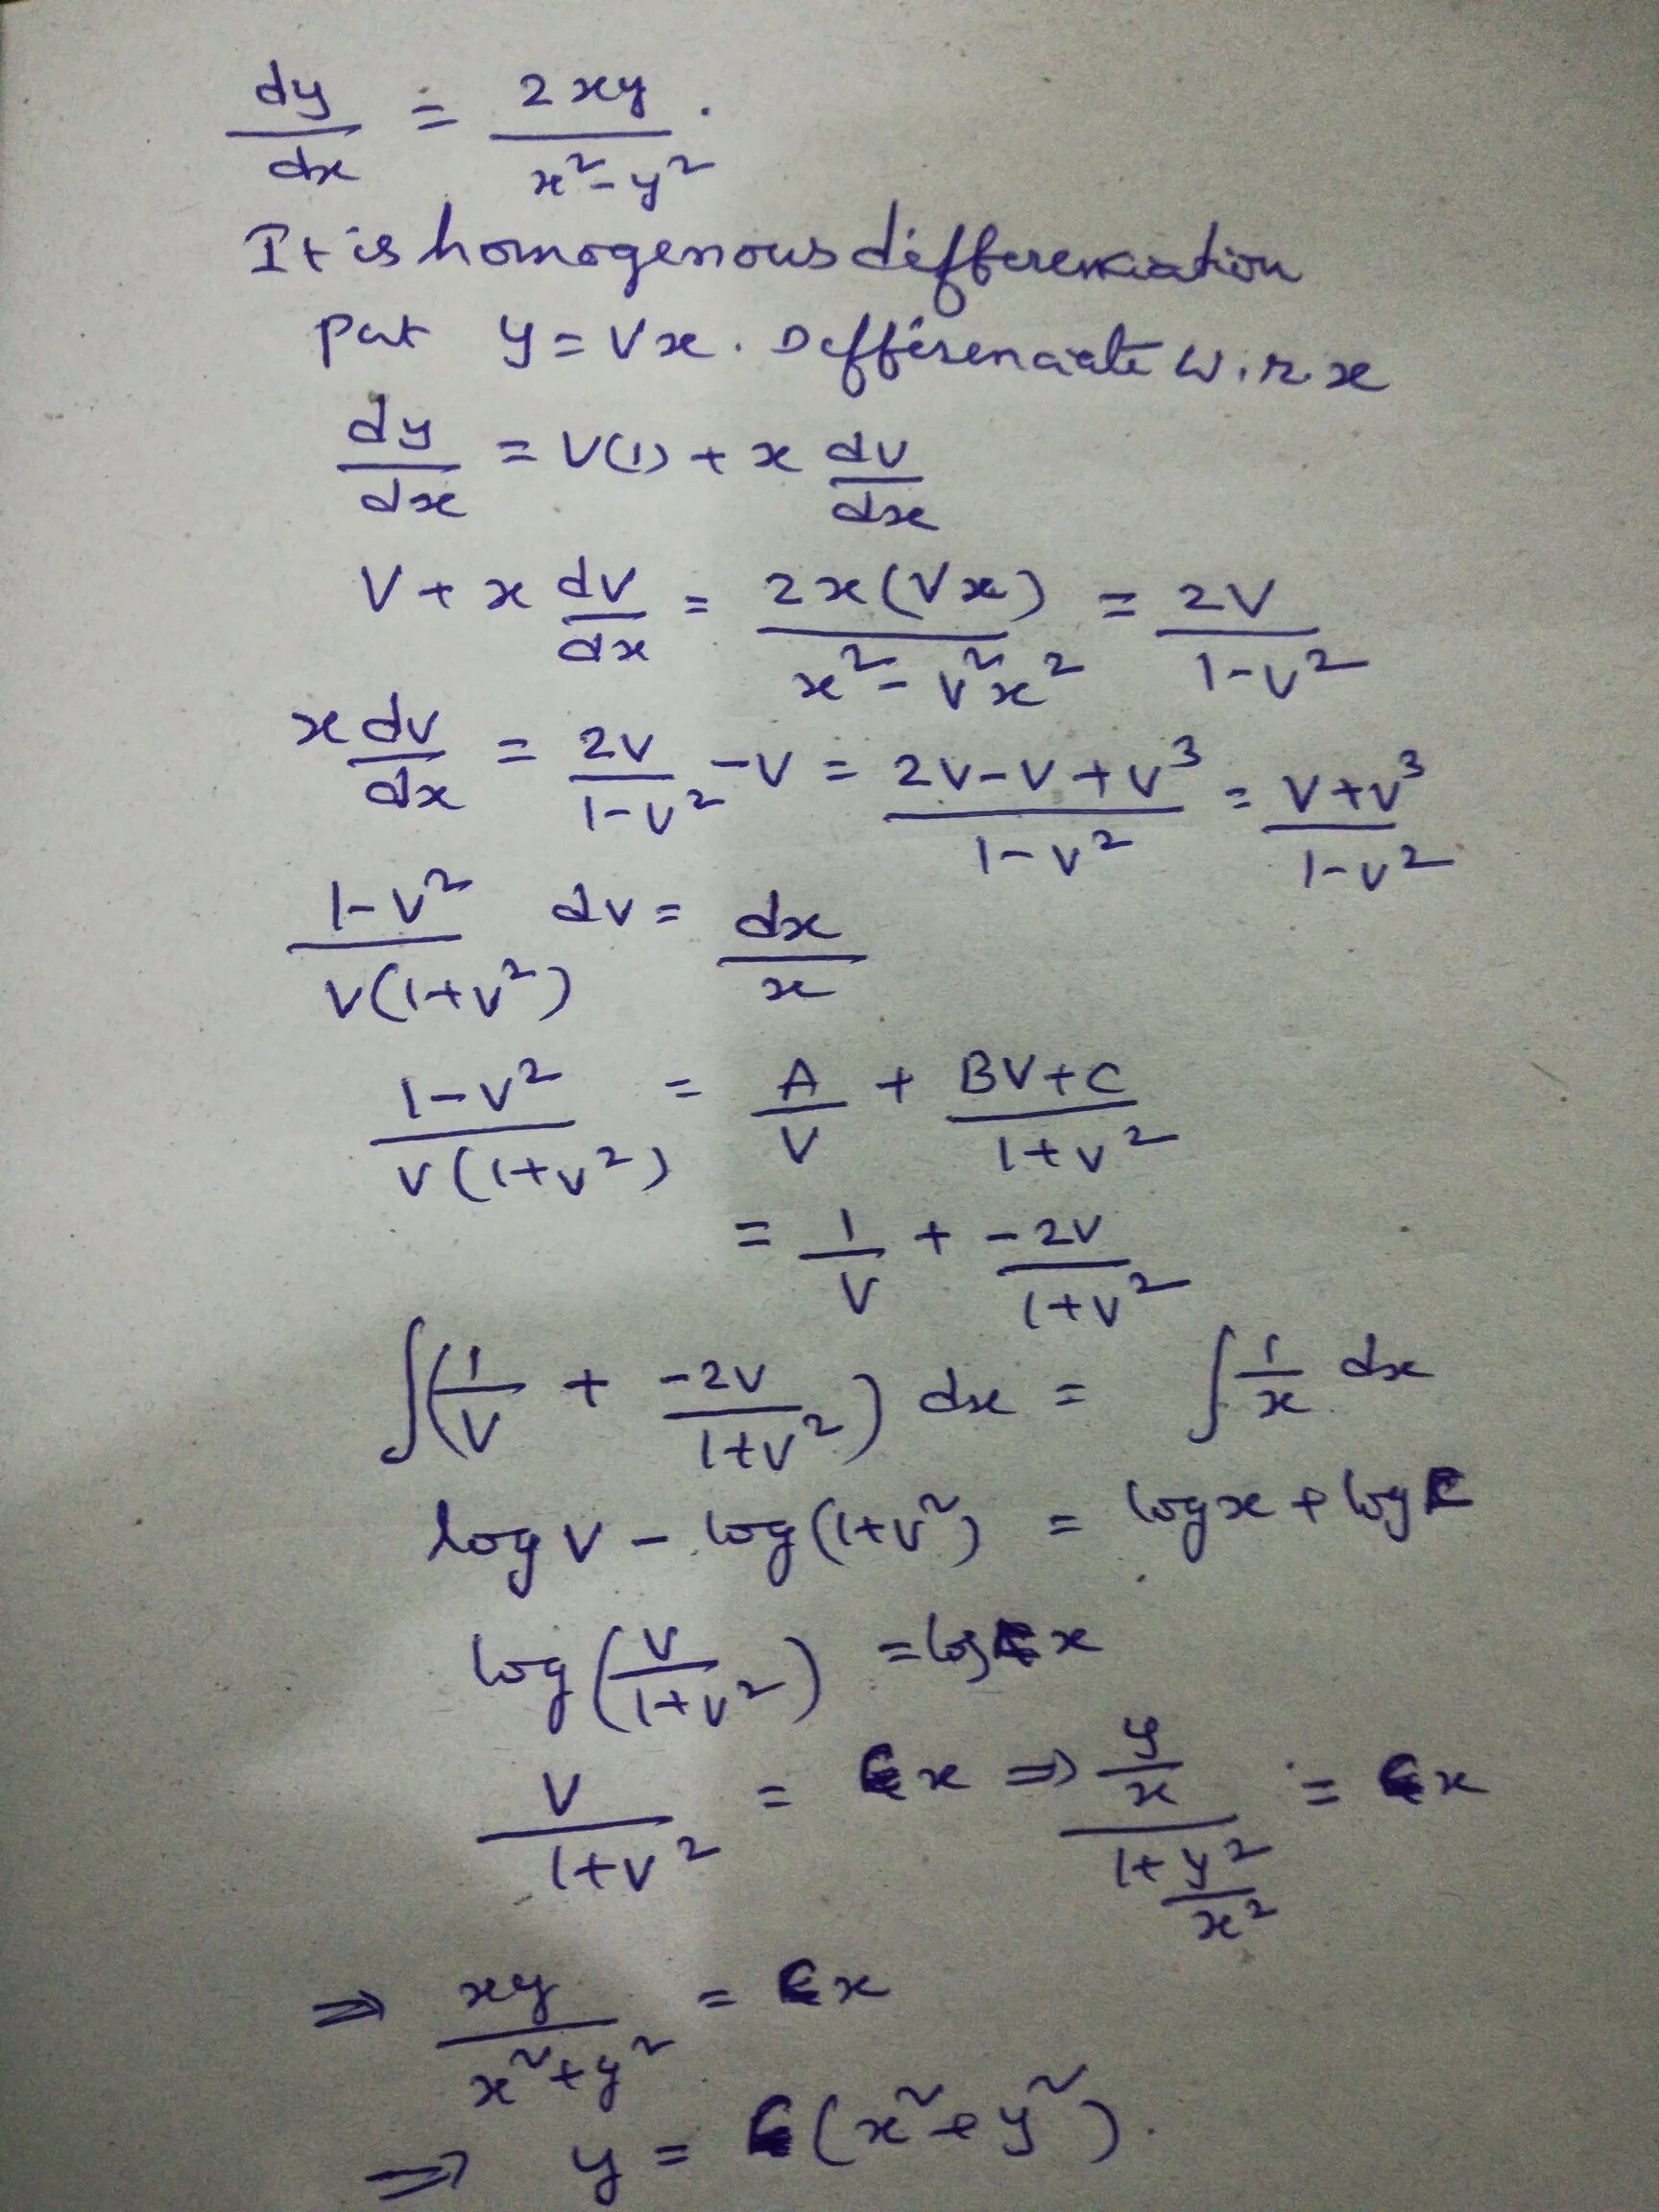 dy/dx = 2xy/(x²-y²).
It is homogenous differenciation
put y = Vx. Differenciate w.r.x
dy/dx = V(1) + x dv/dx
V + x dv/dx = 2x(Vx)/(x²-v²x²) = 2V/(1-v²)
x dv/dx = 2v/(1-v²) - v = (2v-v+v³)/(1-v²) = (v+v³)/(1-v²)
(1-v²)/(v(1+v²)) dv = dx/x
(1-v²)/(v(1+v²)) = A/V + (BV+C)/(1+v²)
= 1/V + -2v/(1+v²)
∫(1/V + -2v/(1+v²)) dx = ∫ 1/x dx
log v - log(1+v²) = log x + log C
log(v/(1+v²)) = log C x
v/(1+v²) = C x ⇒ (y/x)/(1+y²/x²) = C x
⇒ xy/(x²+y²) = C x
⇒ y = C(x²+y²).